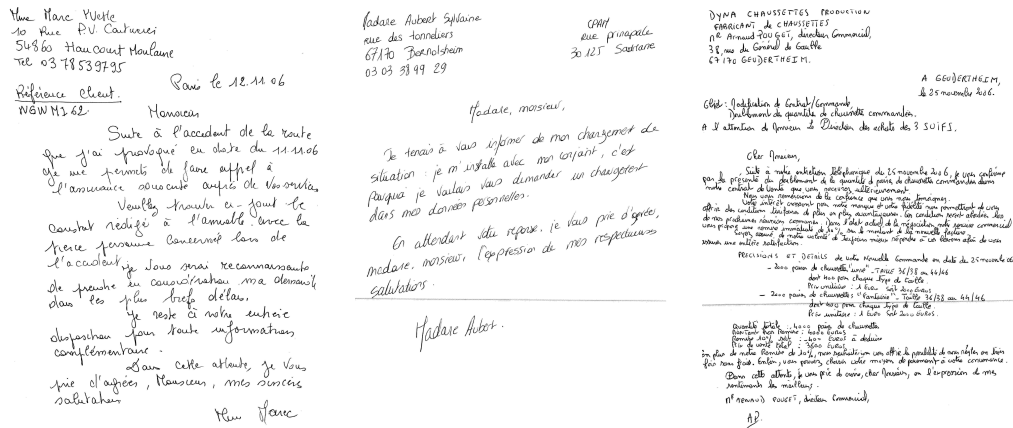 Mme Marc Yvette
10 Rue P.V. Couturier
54860 Haucourt Moulaine
Tel 0378539795
Paris le 12.11.06
Référence Client.
NGWMI62
Monsieur
Suite à l'accident de la route
que j'ai provoqué en date du 11.11.06
je me permets de faire appel à
l'assurance souscrite auprès de vos services
Veuillez trouver ci-joint le
constat rédigé à l'amiable avec la
tierce personne concernée lors de
l'accident, je vous serai reconnaissante
de prendre en considération ma demande
dans les plus brefs délais.
Je reste à votre entière
disposition pour toute information
complémentaire.
Dans cette attente, je vous
prie d'agréer, Monsieur, mes sincères
salutation
Mme Marc
Madame Aubert Sylvaine
rue des tonneliers
67170 Bernolsheim
03 03 38 99 29
CPAM
rue principale
30 125 Saumane
Madame, monsieur,
Je tenais à vous informer de mon changement de
situation : je m'installe avec mon conjoint, c'est
pourquoi je voulais vous demander un changement
dans mes données personnelles.
En attendant votre réponse, je vous prie d'agréer,
madame, monsieur, l'expression de mes respectueuses
salutations.
Madame Aubert.
DYNA CHAUSSETTES PRODUCTION
FABRICANT de CHAUSSETTES
Mr Arnaud POUGET, directeur Commercial,
38, rue du Général de Gaulle
67170 GEUDERTHEIM.
A GEUDERTHEIM,
le 25 novembre 2006.
Objet : Modification de Contrat/Commande,
Doublement de quantité de chaussettes commandées.
A l'attention de Monsieur Le Directeur des achats des 3 SUISSES.
Cher Monsieur,
Suite à notre entretien téléphonique du 25 novembre 2006, je vous confirme
par la présente du doublement de la quantité de paires de chaussettes commandées dans
notre contrat de vente que vous recevrez ultérieurement.
Nous vous remercions de la confiance que vous nous témoignez.
Votre intérêt croissant pour notre marque et votre fidélité nous permettent de vous
offrir des conditions tarifaires de plus en plus avantageuses. Ces conditions seront
de nos prochaines réunions communes. Dans l'état actuel de la négociation notre service commercial
vous propose une remise immédiate de 10%, sur le montant de la nouvelle facture.
Soyez assuré de notre volonté de toujours mieux répondre à vos besoins afin de vous
assurer une entière satisfaction.
PRECISIONS ET DETAILS de votre Nouvelle Commande en date du 25 novembre 06
- 2000 paires de chaussettes "unie" - TAILLE 36/38 au 44/46
dont 400 pour chaque type de taille.
Prix unitaire : 1 Euro Soit 2000 EUROS
- 2000 paires de chaussettes "Fantaisie" - Taille 36/38 au 44/46
dont 400 pour chaque type de Taille.
Prix unitaire : 1 EURO Soit 2000 EUROS.
Quantité Totale : 4000 paires de chaussettes
MONTANT hors Remise : 4000 EUROS
Remise 10% soit : -400 EUROS à déduire
Prix de vente total : 3600 EUROS
En plus de notre Remise de 10%, nous souhaitons vous offrir la possibilité de nous régler en trois
fois sans frais. Enfin, vous pouvez choisir votre moyen de paiement à votre convenance.
Dans cette attente, je vous prie de croire, cher Monsieur, en l'expression de mes
sentiments les meilleurs.
Mr ARNAUD POUGET, directeur Commercial,
AP.